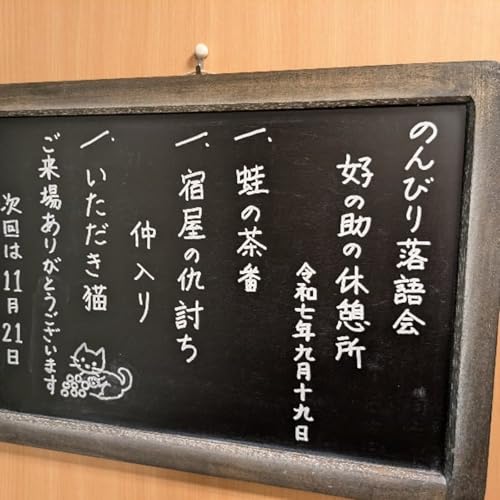 のんびり落語会
好の助の休憩所
令和七年九月十九日
一、蛙の茶番
一、宿屋の仇討ち
仲入り
一、いただき猫
ご来場ありがとうございます
次回は11月21日